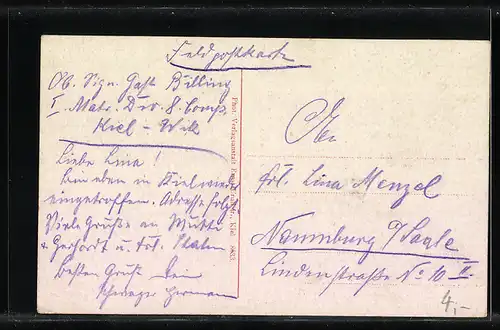 Feldpostkarte
Ob. Sign. Gast Billing
I. Matr. Div. 8. Comp.
Kiel - Wik
Liebe Lina!
Bin eben in Kiel
eingetroffen. Adresse folgt.
Viele Grüße an Mutti
+ Gerhart u. Frl.
Besten Gruß Dein
Schwager Hermann
Phot. Verlagsanstalt
Kiel.
An
Frl. Lina Menzel
Naumburg / Saale
Lindenstraße No 10 II
4,-